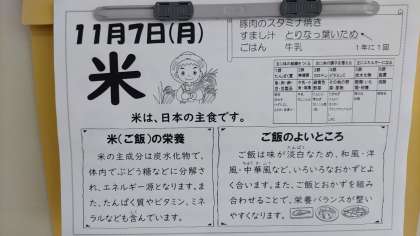 11月7日(月)
豚肉のスタミナ焼き
すまし汁 とりなっ葉いため
ごはん 牛乳
1年に1回
米
米は、日本の主食です。
米(ご飯)の栄養
米の主成分は炭水化物で、
体内でぶどう糖などに分解さ
れ、エネルギー源となります。ま
た、たんぱく質やビタミン、ミネ
ラルなども含んでいます。
ご飯のよいところ
ご飯は味が淡白なため、和風・洋
風・中華風など、いろいろなおかずとよ
く合います。また、ご飯とおかずを組み
合わせることで、栄養バランスが整い
やすくなります。